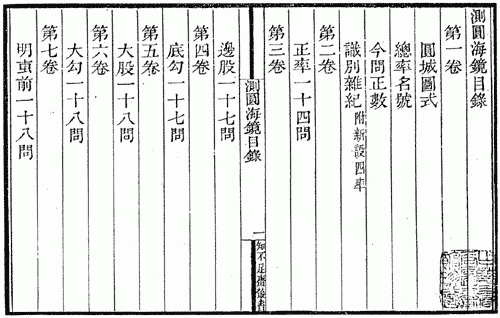 測圓海鏡目錄
第一卷
圓城圖式
總率名號
今問正數
識別雜紀 附新設四率
第二卷
正率一十四問
第三卷
測圓海鏡目錄
一
知不足齋叢書
邊股一十七問
第四卷
底勾一十七問
第五卷
大股一十八問
第六卷
大勾一十八問
第七卷
明叀前一十八問